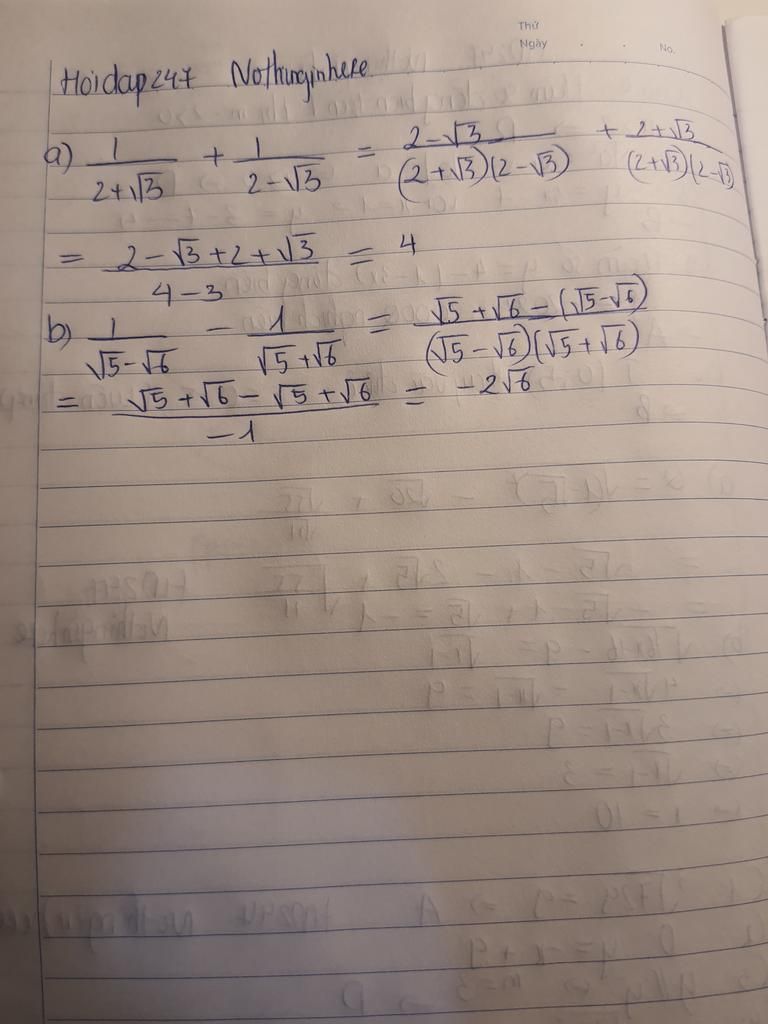 Thứ
Ngày . . No.
Hoidap247 Nothinginhere
a) 1/(2+√3) + 1/(2-√3) = (2-√3)/((2+√3)(2-√3)) + (2+√3)/((2+√3)(2-√3))
= (2-√3+2+√3)/(4-3) = 4
b) 1/(√5-√6) - 1/(√5+√6) = (√5+√6-(√5-√6))/((√5-√6)(√5+√6))
= (√5+√6-√5+√6)/(-1) = -2√6